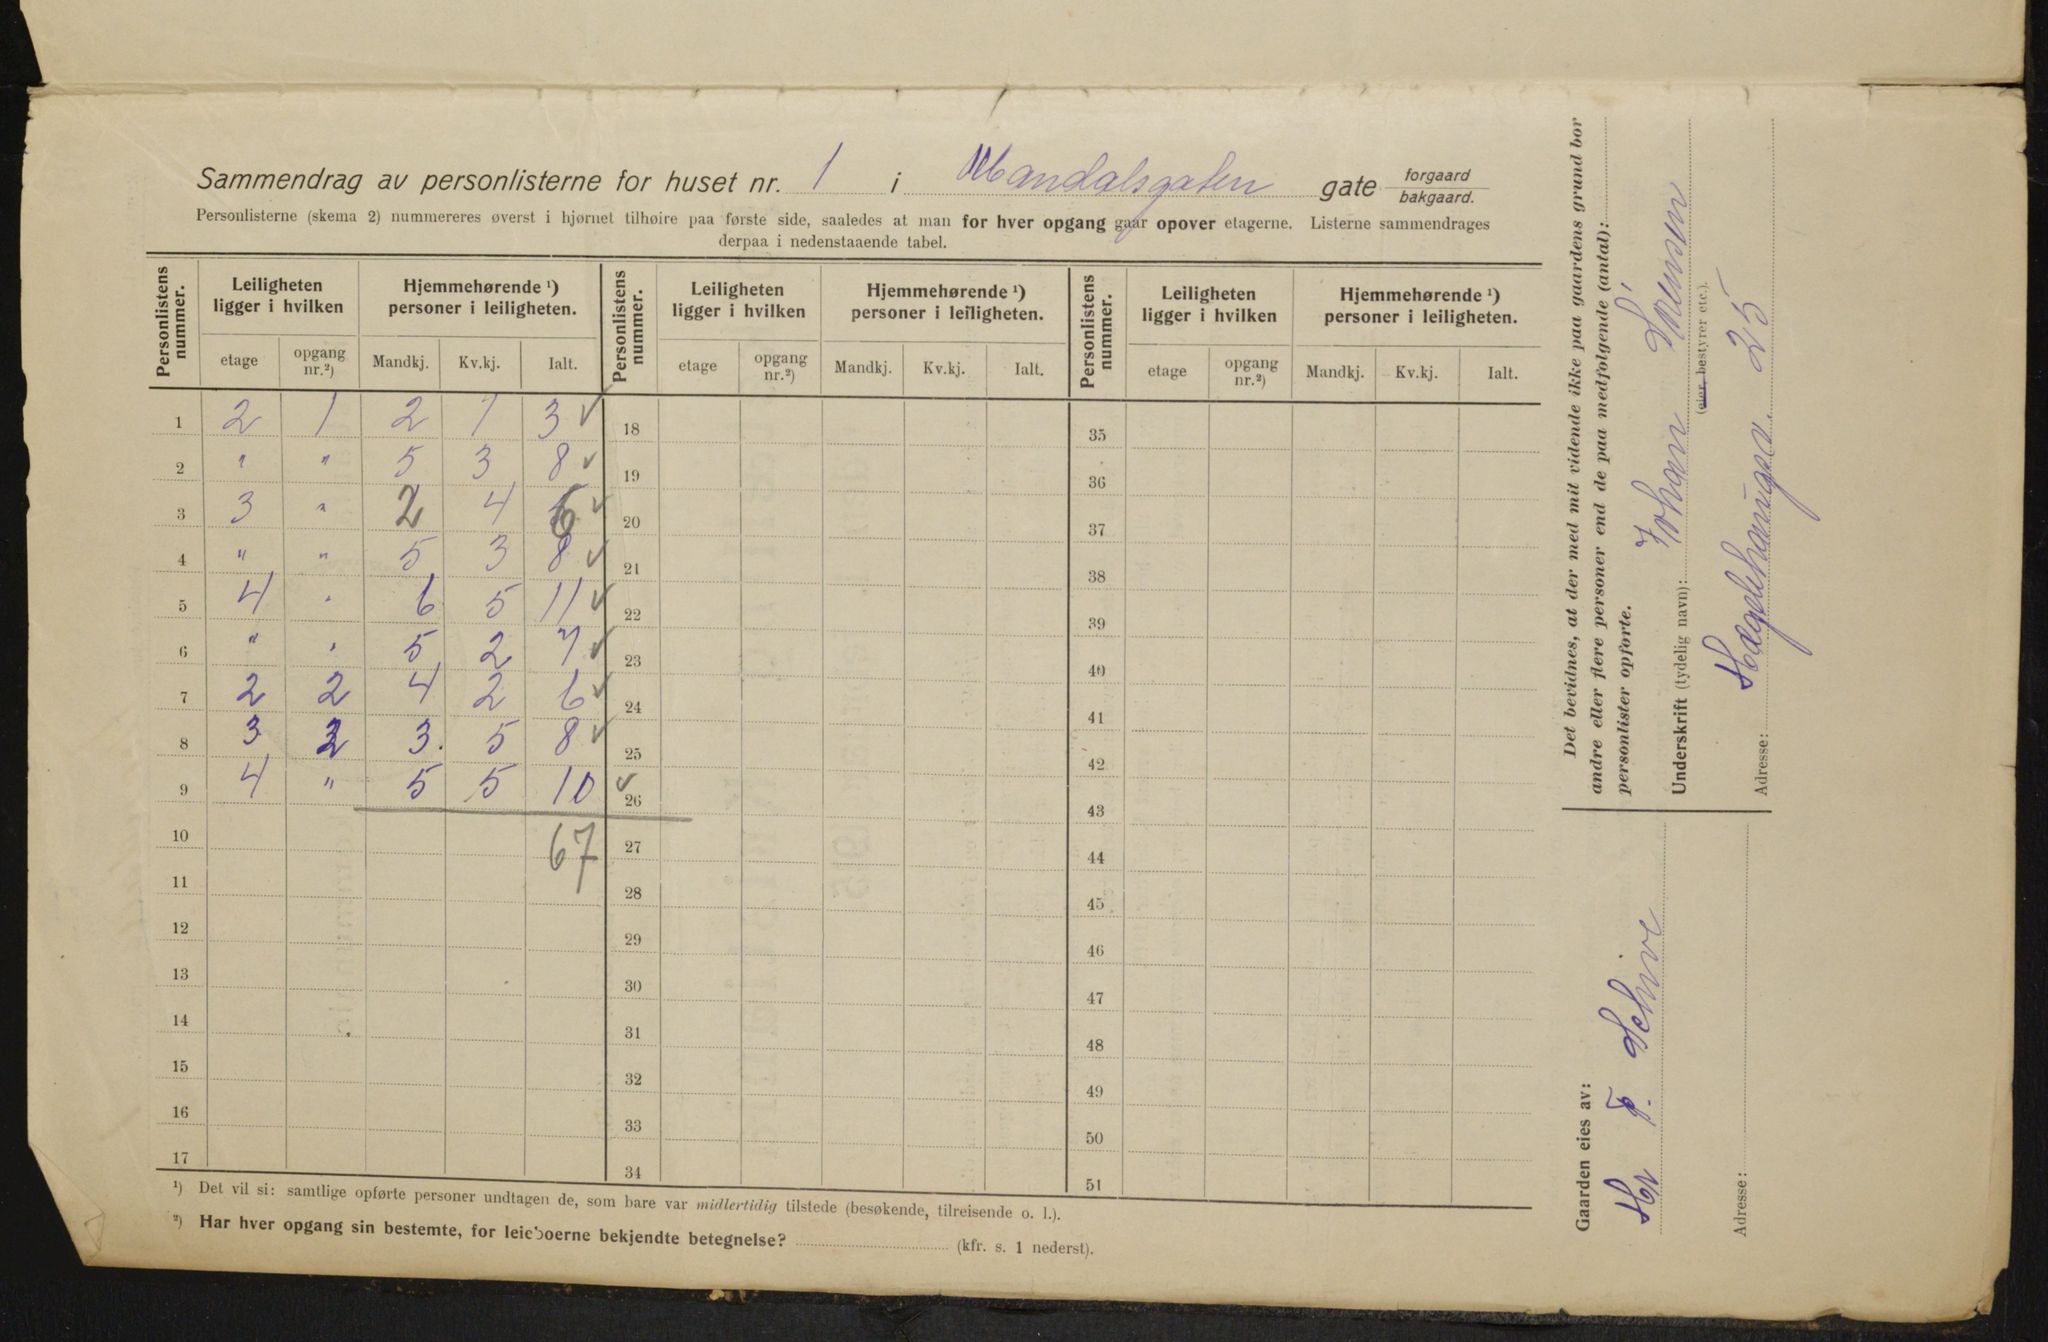 Sammendrag av personlisterne for huset nr. 1 i Mandalsgaten gate forgaard bakgaard.
Personlisterne (skema 2) nummereres øverst i hjørnet tilhøire paa første side, saaledes at man for hver opgang gaar opover etagerne. Listerne sammendrages
derpaa i nedenstaaende tabel.
Personlistens nummer. Leiligheten ligger i hvilken Hjemmehørende ¹) personer i leiligheten. Personlistens nummer. Leiligheten ligger i hvilken Hjemmehørende ¹) personer i leiligheten. Personlistens nummer. Leiligheten ligger i hvilken Hjemmehørende ¹) personer i leiligheten.
etage opgang nr.²) Mandkj. Kv.kj. Ialt. etage opgang nr.²) Mandkj. Kv.kj. Ialt. etage opgang nr.²) Mandkj. Kv.kj. Ialt.
1 2 1 2 1 3 ✓ 18 35
2 " " 5 3 8 ✓ 19 36
3 3 " 2 4 6 ✓ 20 37
4 " " 5 3 8 ✓ 21 38
5 4 " 6 5 11 ✓ 22 39
6 " " 5 2 7 ✓ 23 40
7 2 2 4 2 6 ✓ 24 41
8 3 2 3. 5 8 ✓ 25 42
9 4 " 5 5 10 ✓ 26 43
10 67 27 44
11 28 45
12 29 46
13 30 47
14 31 48
15 32 49
16 33 50
17 34 51
¹) Det vil si: samtlige opførte personer undtagen de, som bare var midlertidig tilstede (besøkende, tilreisende o. l.).
²) Har hver opgang sin bestemte, for leieboerne bekjendte betegnelse? (kfr. s. 1 nederst).
Det bevidnes, at der med mit vidende ikke paa gaardens grund bor
andre eller flere personer end de paa medfølgende (antal):
personlister opførte.
Underskrift (tydelig navn): Johan Sörensen
(eier, bestyrer etc.).
Adresse: Hægdehaugsv. 25
Gaarden eies av:
Hr F. Schive
Adresse: